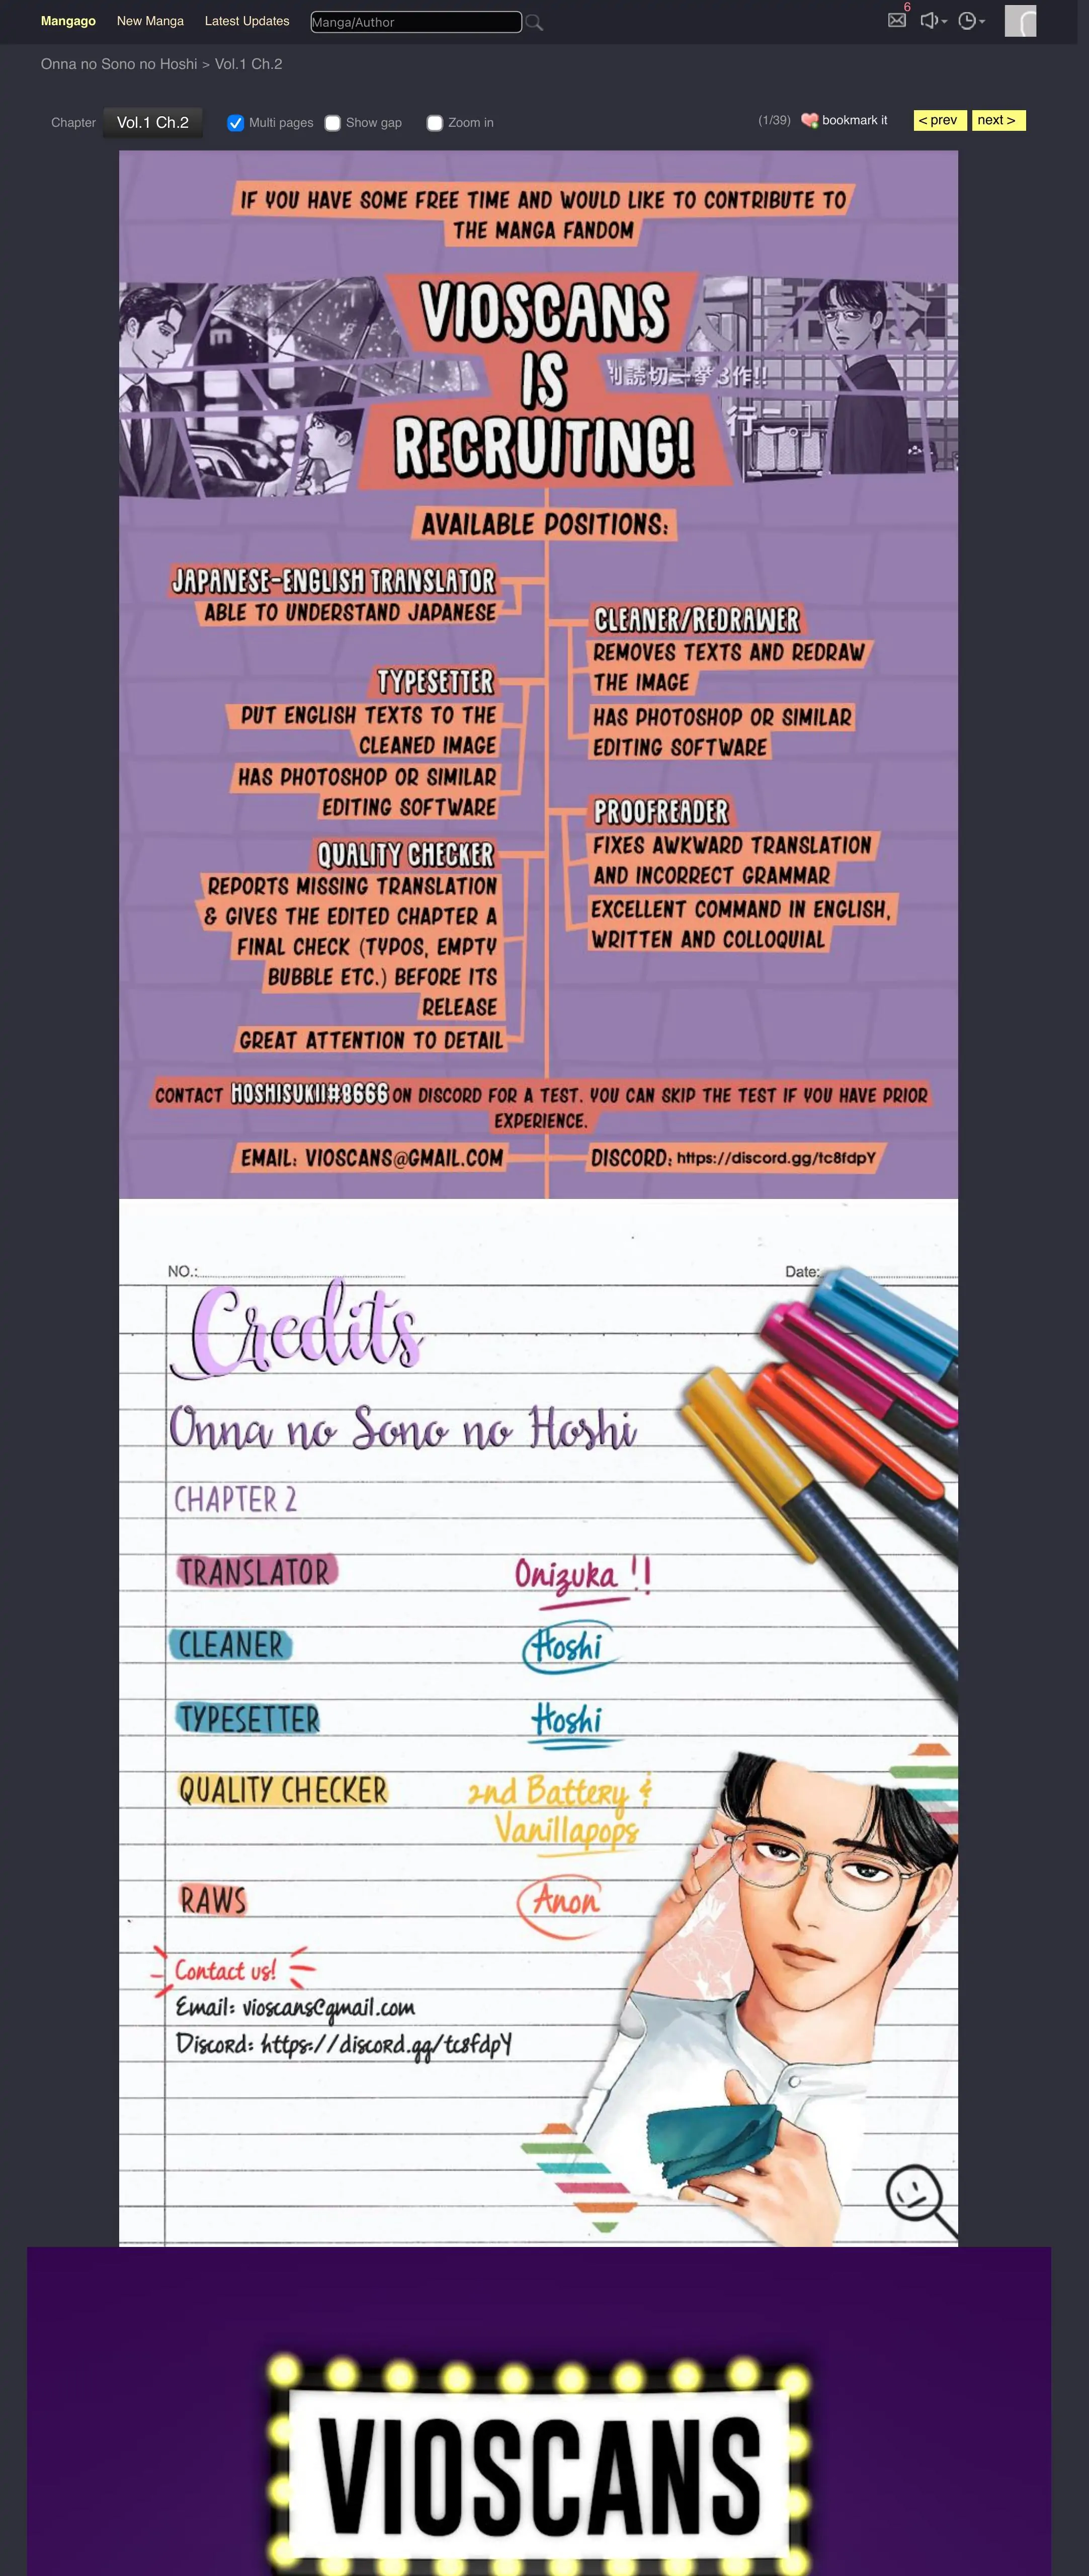 Mangago New Manga Latest Updates Manga/Author 6
Onna no Sono no Hoshi > Vol.1 Ch.2
Chapter Vol.1 Ch.2 Multi pages Show gap Zoom in (1/39) bookmark it < prev next >
IF YOU HAVE SOME FREE TIME AND WOULD LIKE TO CONTRIBUTE TO
THE MANGA FANDOM
VIOSCANS
IS
RECRUITING!
読切一挙3作!!
行こ。」
AVAILABLE POSITIONS:
JAPANESE-ENGLISH TRANSLATOR
ABLE TO UNDERSTAND JAPANESE
CLEANER/REDRAWER
REMOVES TEXTS AND REDRAW
THE IMAGE
HAS PHOTOSHOP OR SIMILAR
EDITING SOFTWARE
TYPESETTER
PUT ENGLISH TEXTS TO THE
CLEANED IMAGE
HAS PHOTOSHOP OR SIMILAR
EDITING SOFTWARE
PROOFREADER
FIXES AWKWARD TRANSLATION
AND INCORRECT GRAMMAR
EXCELLENT COMMAND IN ENGLISH,
WRITTEN AND COLLOQUIAL
QUALITY CHECKER
REPORTS MISSING TRANSLATION
& GIVES THE EDITED CHAPTER A
FINAL CHECK (TYPOS, EMPTY
BUBBLE ETC.) BEFORE ITS
RELEASE
GREAT ATTENTION TO DETAIL
CONTACT HOSHISUKII#8666 ON DISCORD FOR A TEST. YOU CAN SKIP THE TEST IF YOU HAVE PRIOR
EXPERIENCE.
EMAIL: VIOSCANS@GMAIL.COM DISCORD: https://discord.gg/tc8fdpY
NO.: Date:
Credits
Onna no Sono no Hoshi
CHAPTER 2
TRANSLATOR Onizuka !!
CLEANER Hoshi
TYPESETTER Hoshi
QUALITY CHECKER 2nd Battery &
Vanillapops
RAWS Anon
Contact us!
Email: vioscans@gmail.com
Discord: https://discord.gg/tc8fdpY
VIOSCANS